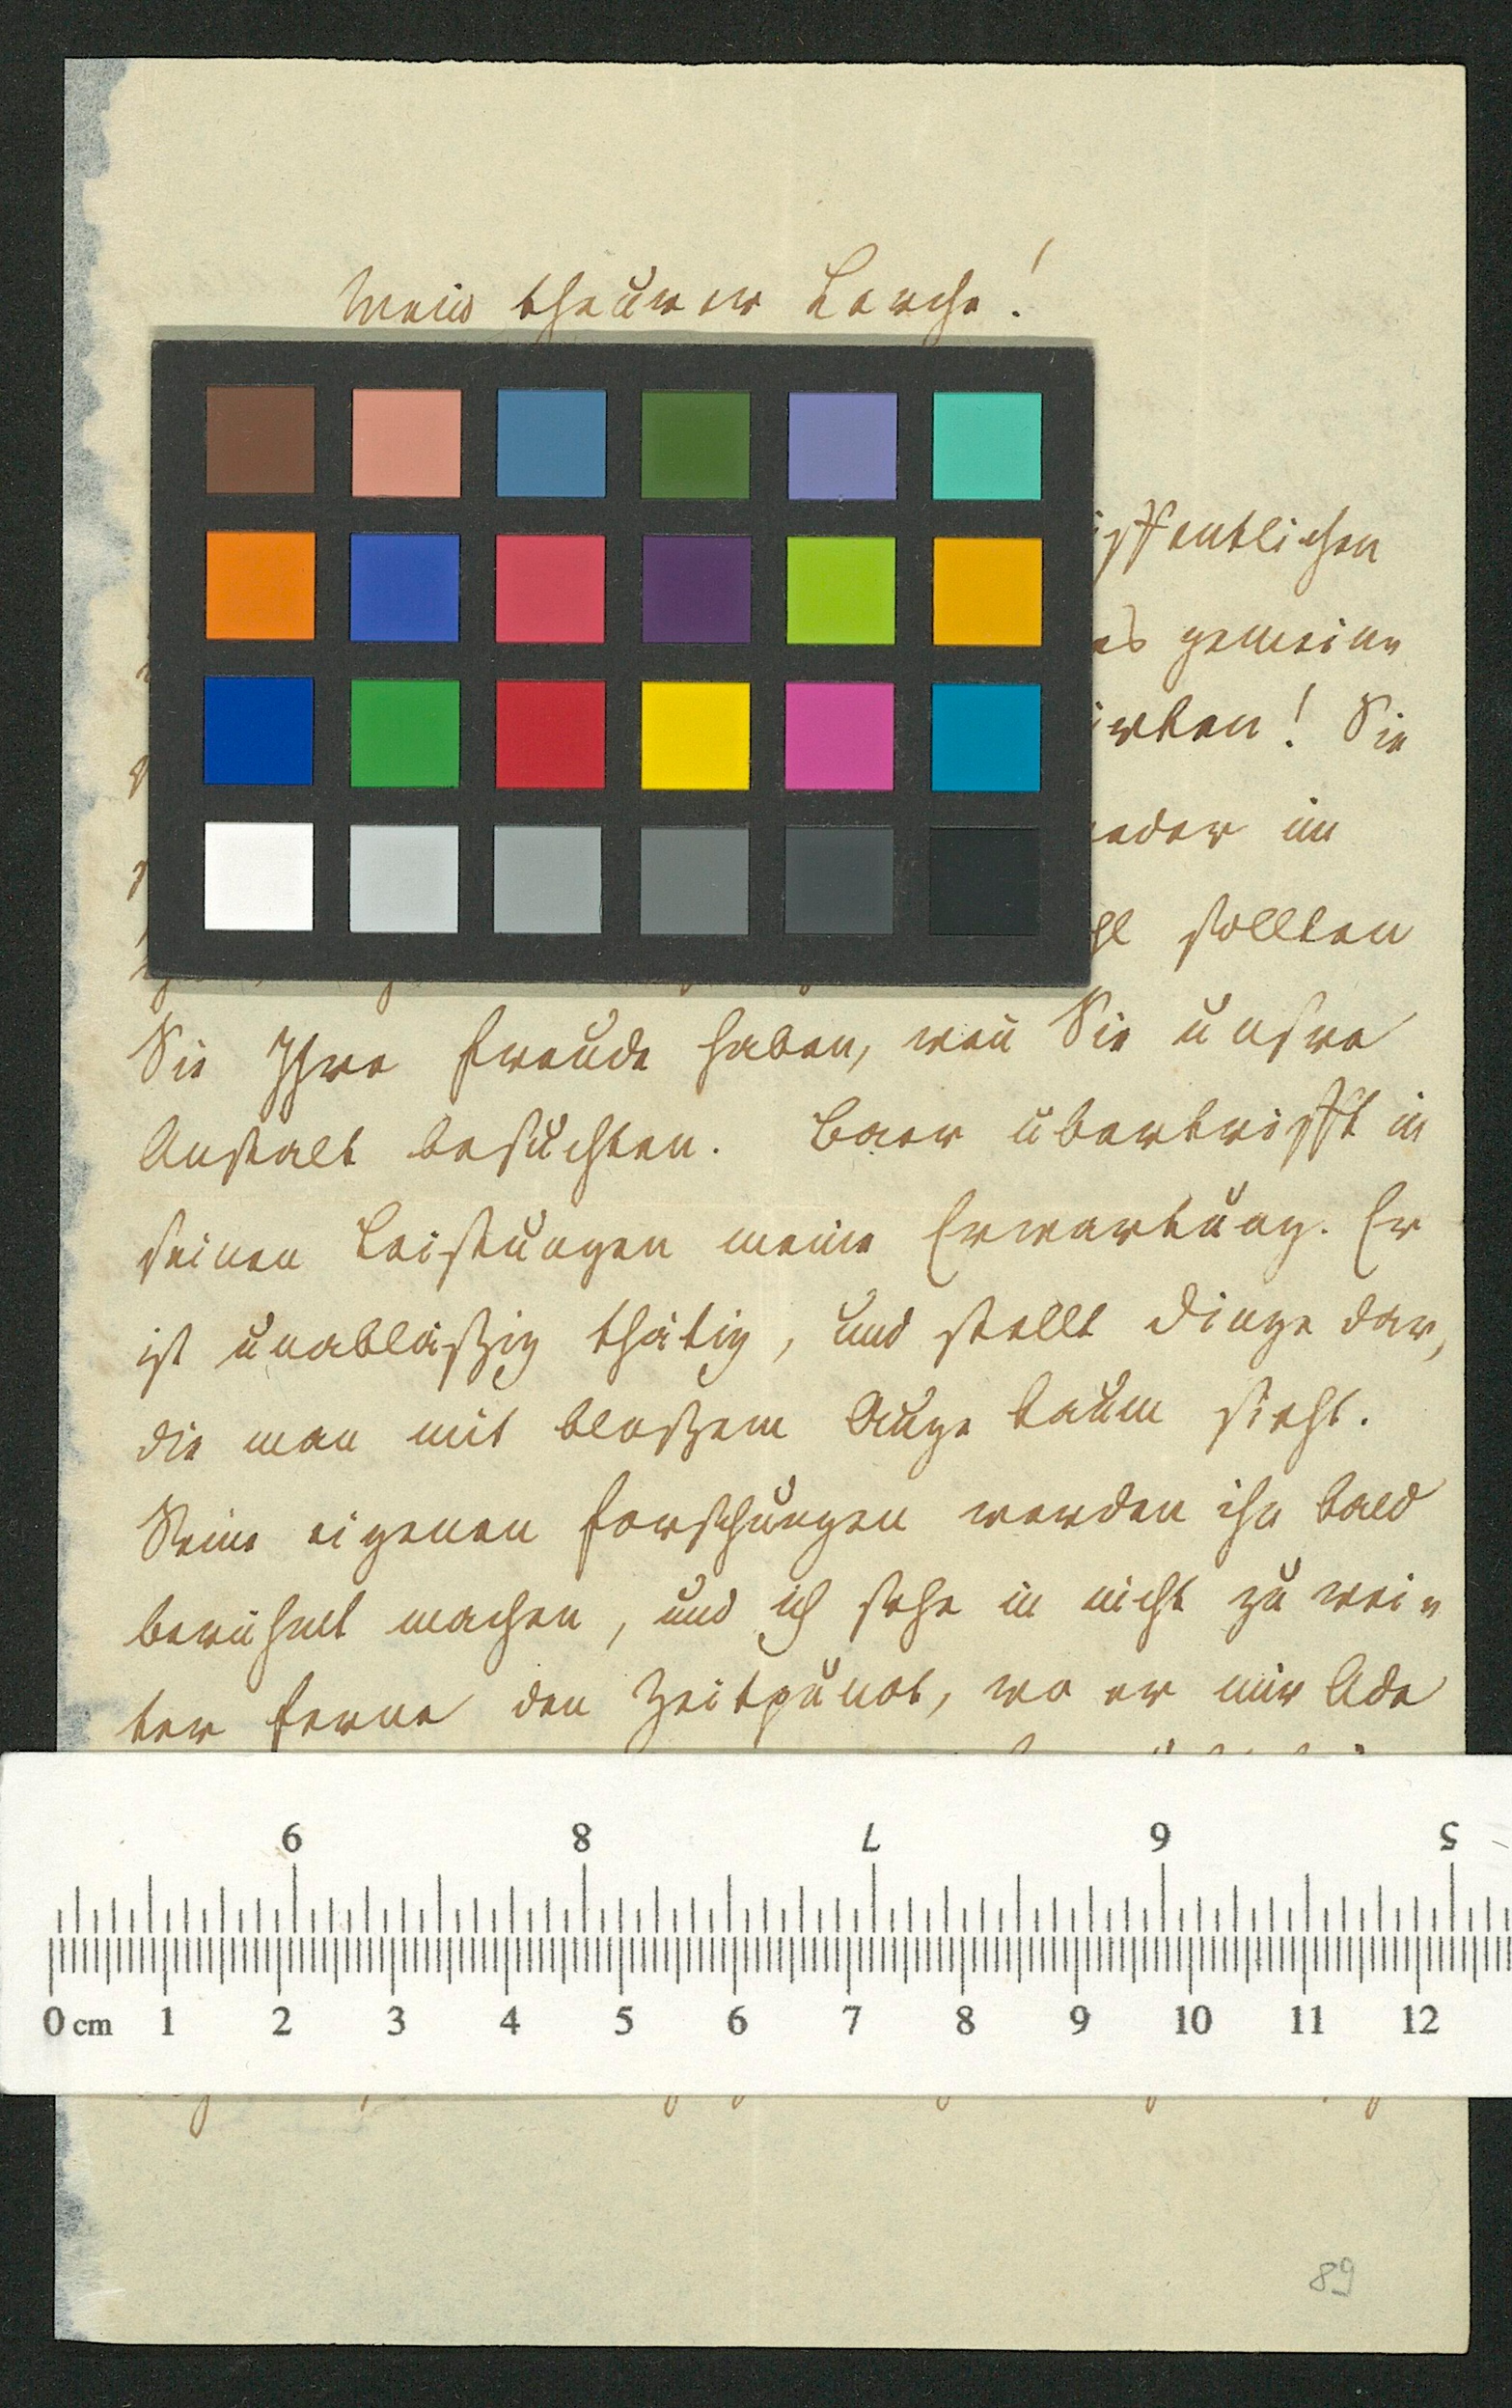 Mein theurer Lerche!
gemeine
! Sie
im
sollten
Sie Ihre Freude haben, weñ Sie unsre
Anstalt besuchten. Baer übertrifft in
seinen Leistungen meine Erwartung. Er
ist unabläßig thätig, und stellt Dinge dar,
die man mit bloßem Auge kaum sieht.
Seine eigenen Forschungen werden ihn bald
berühmt machen, und ich sehe in nicht zu wei-
ter Ferne den Zeitpunct, wo er mir Ade
9 8 7 6 5
0 cm 1 2 3 4 5 6 7 8 9 10 11 12
89